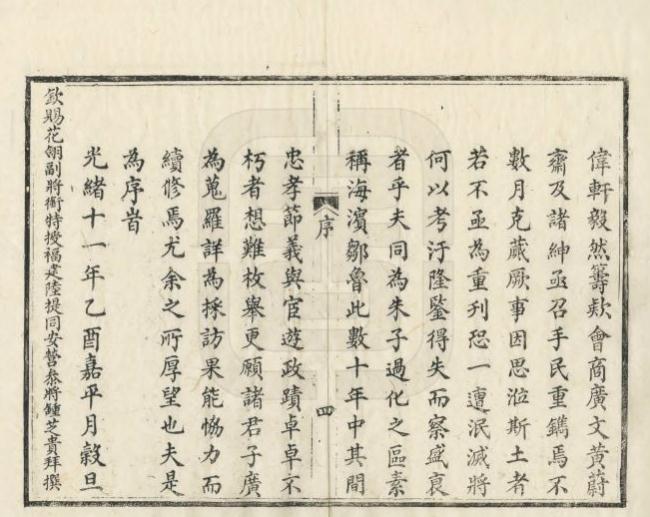 偉軒毅然籌欵會商廣文黃蔚
齋及諸紳亟召手民重鐫焉不
數月克蕆厥事因思涖斯土者
若不亟為重刊恐一遭泯滅將
何以考汙隆鑒得失而察盛衰
者乎夫同為朱子過化之區素
稱海濱鄒魯此數十年中其間
序
四
忠孝節義與宦遊政蹟卓卓不
朽者想難枚舉更願諸君子廣
為蒐羅詳為採訪果能恊力而
續修焉尤余之所厚望也夫是
為序旹
光緒十一年乙酉嘉平月穀旦
欽賜花翎副將銜特授福建陸提同安營叅將鍾芝貴拜撰